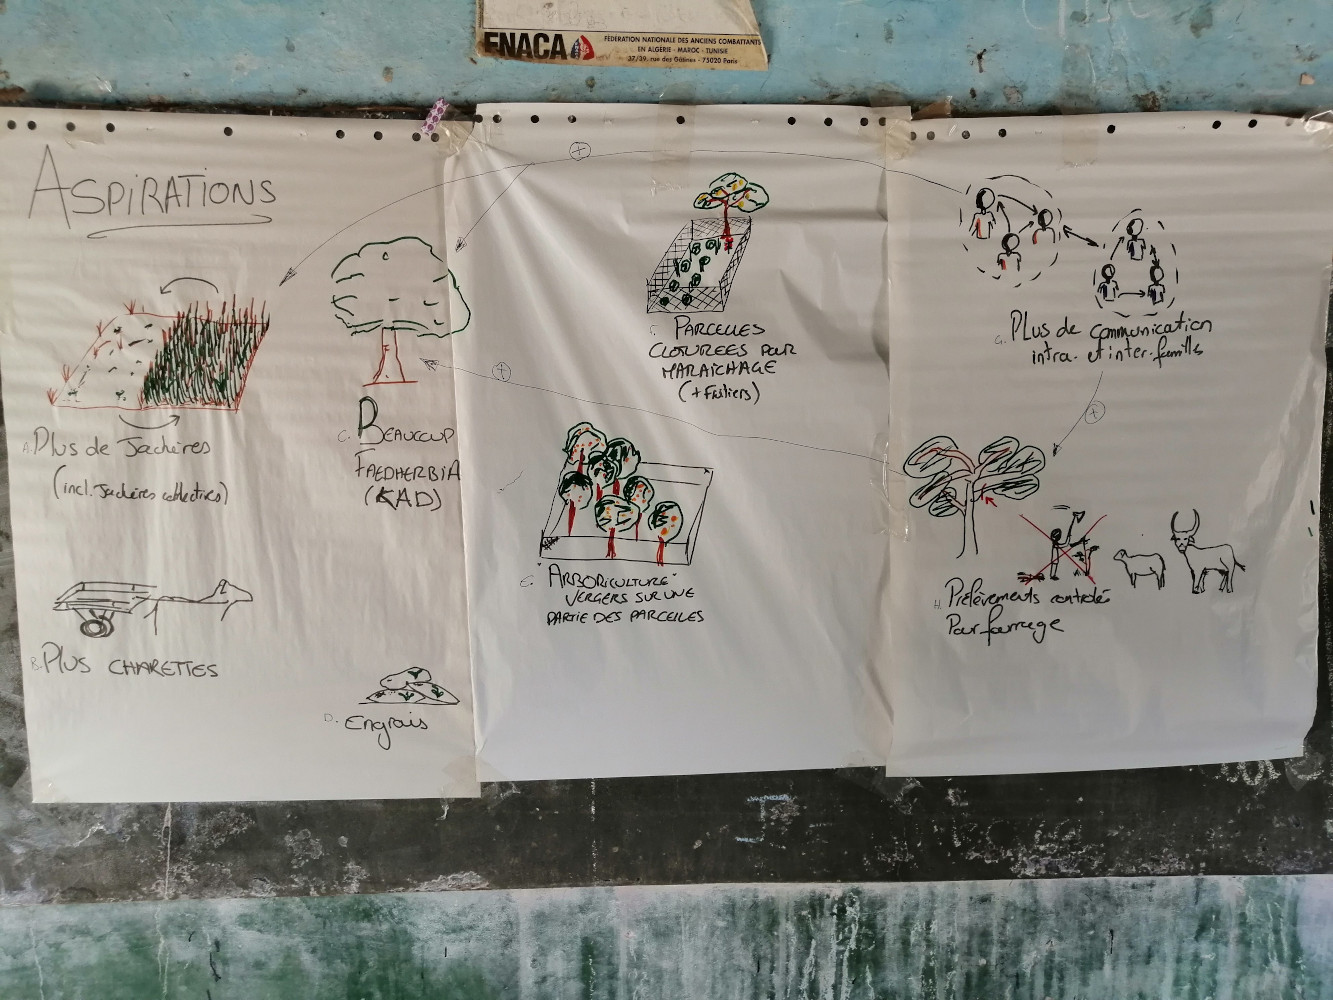 FNACA
FÉDÉRATION NATIONALE DES ANCIENS COMBATTANTS
EN ALGÉRIE - MAROC - TUNISIE
37/39, rue des Gâtines - 75020 Paris
ASPIRATIONS
A. Plus de Jachères
(incl. Jachères collectives)
B. PLUS CHARETTES
C. BEAUCOUP
FAEDHERBIA
(KAD)
D. Engrais
+
+
PARCELLES
CLOTUREES POUR
MARAICHAGE
(+ Fruitiers)
E. "ARBORICULTURE"
VERGERS SUR UNE
PARTIE DES PARCELLES
G. Plus de communication
intra- et inter-familles
+
H. Prélèvements contrôlés
Pour fourrage